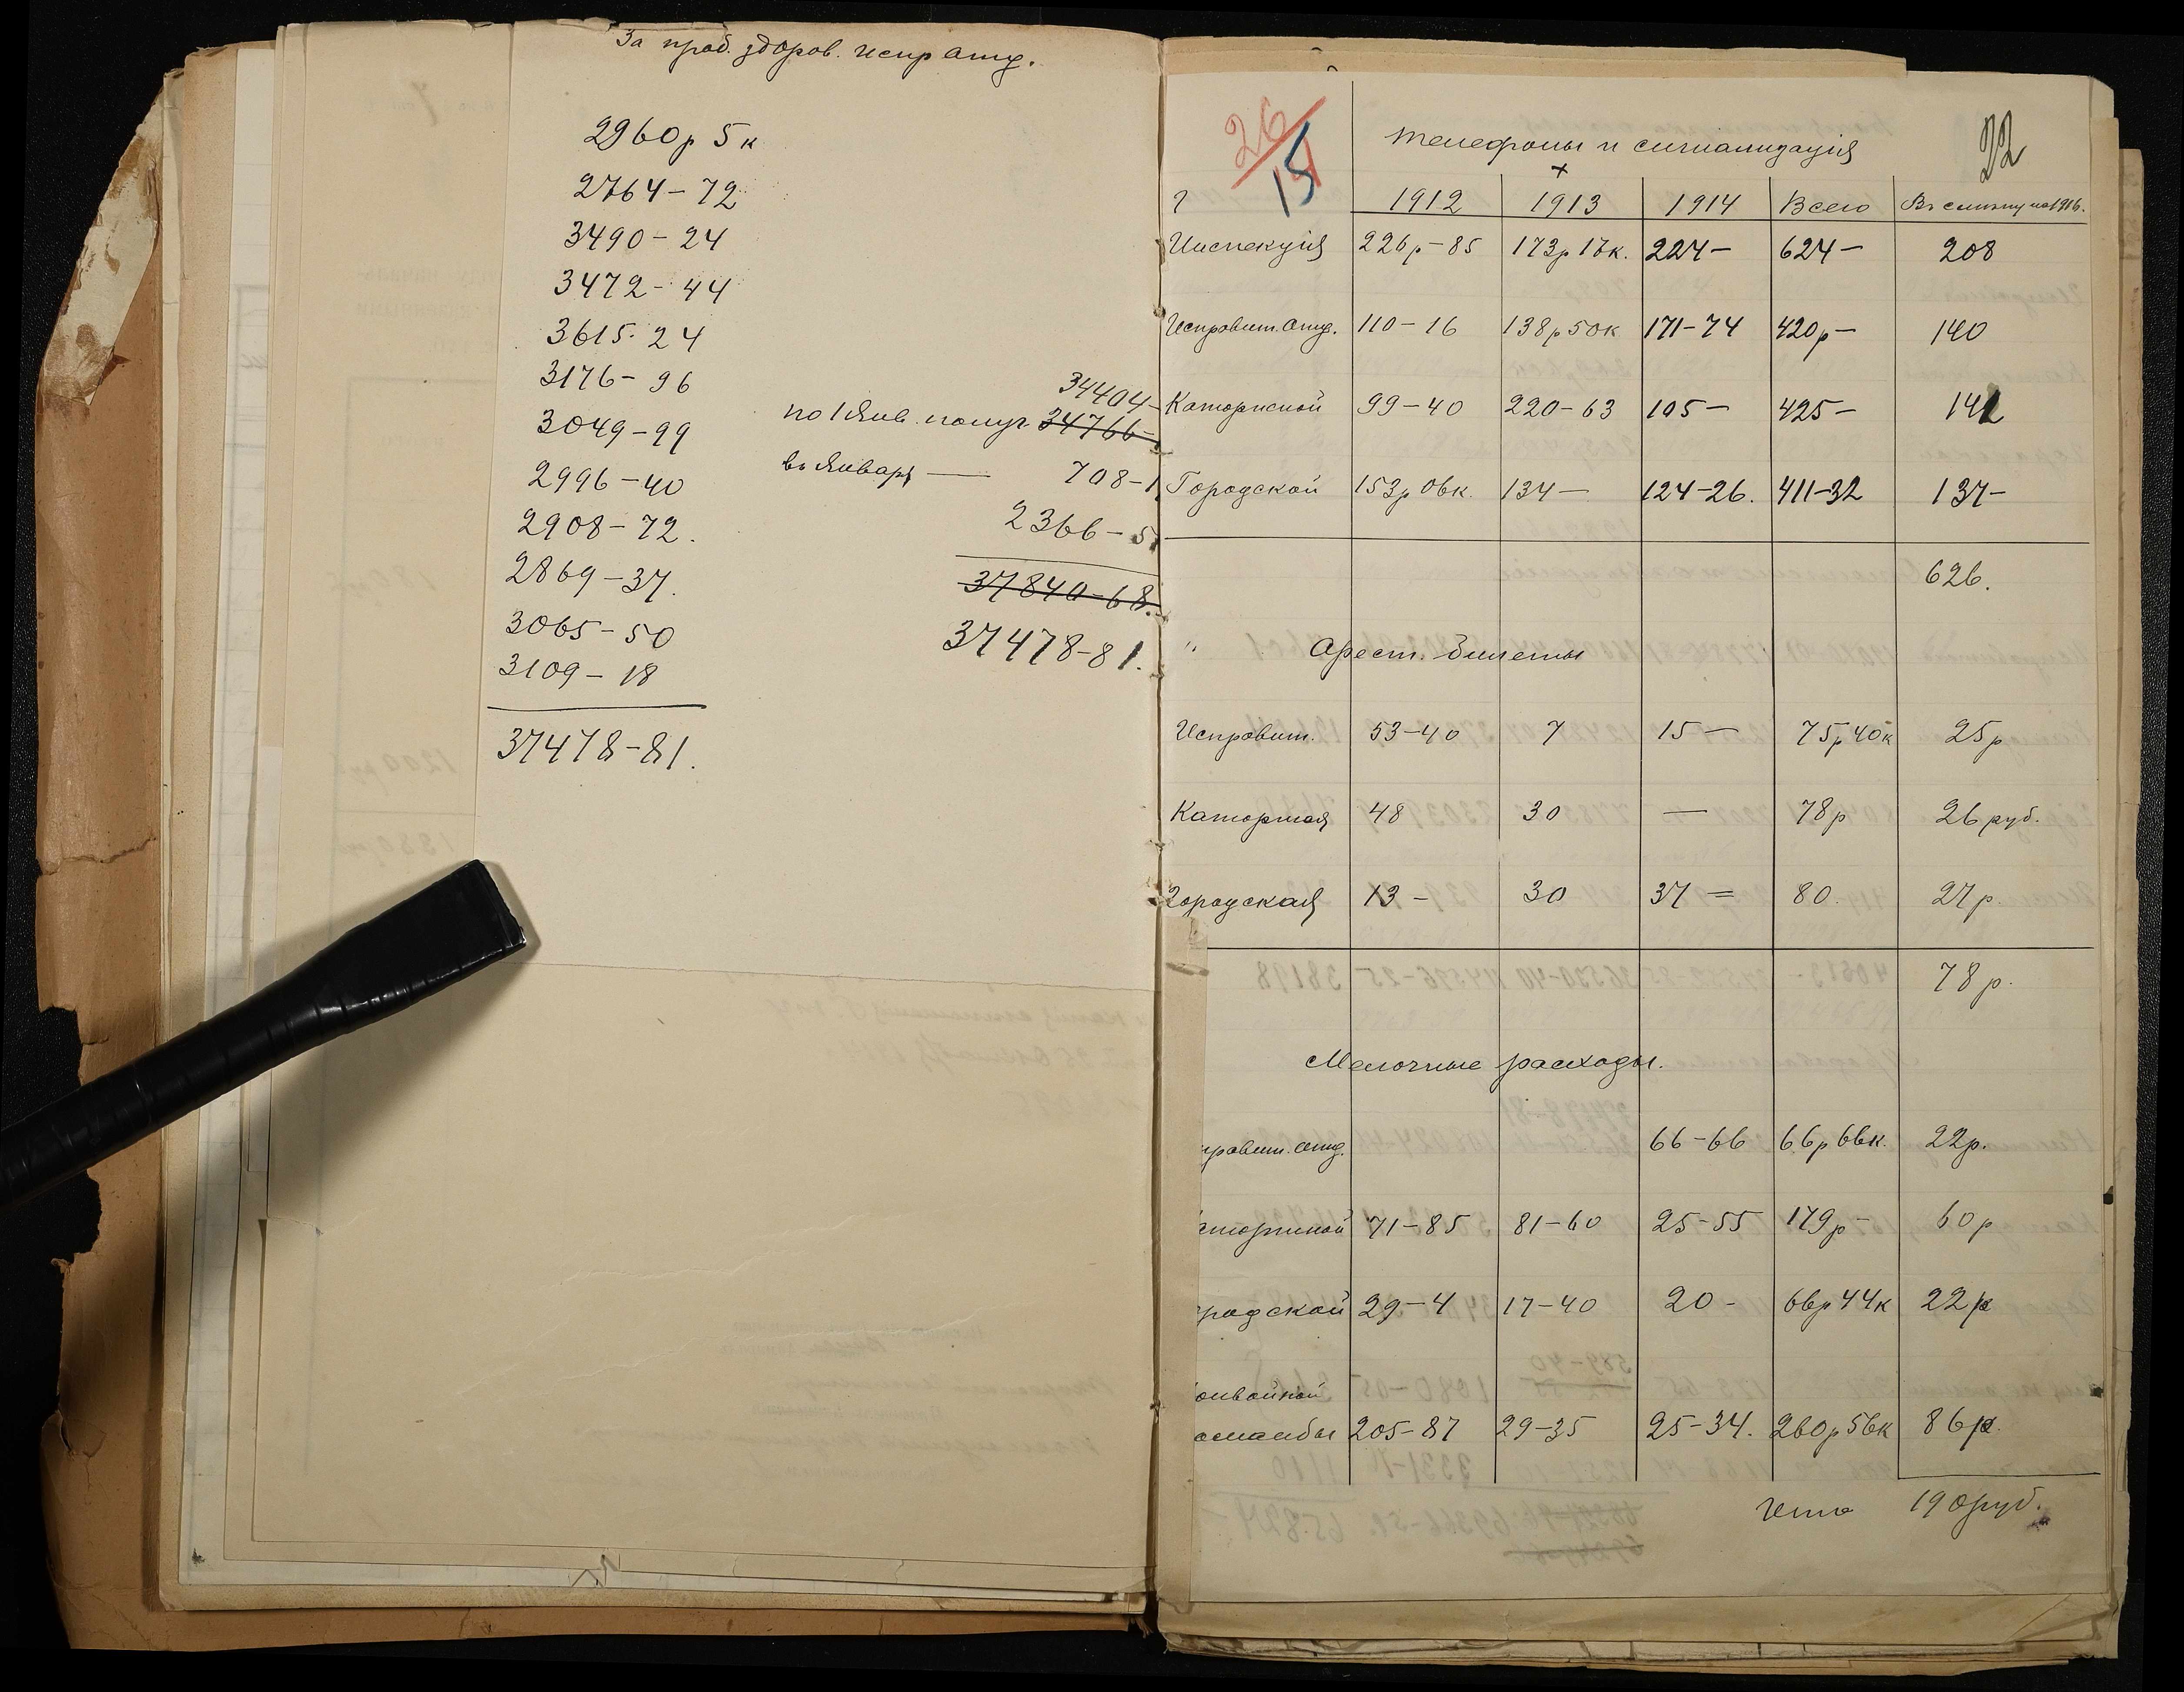 За прод. здоров. испр отд.
2960р 5к
2764 – 72
3490 – 24
3472 – 44
3615. 24
3176 – 96
3049 – 99
2996 – 40
2908 – 72.
2869 – 37.
3065 – 50
3109 – 18
37478 – 81.
34404 –
по 1 янв. получ 34766 –
въ январѣ — 708 – 1
2366 – 5
37840 – 68.
37478 – 81.
26
15
22
Телефоны и сигнализація
г 1912 1913 1914 Всего Въ смѣту на 1916.
Инспекція 226р – 85 173р 17к. 224 – 624 – 208
Исправит. отд. 110 – 16 138р 50к 171 – 74 420р – 140
Каторжной 99 – 40 220 – 63 105 – 425 – 141
Городской 153р 06к. 134 – 124 – 26. 411 – 32 137 –
626.
" Арест. билеты
Исправит. 53 – 40 7 15 – 75р 40к 25р
Каторжная 48 30 — 78р 26 руб.
Городская 13 – 30 37 = 80. 27р.
78р.
Мелочные расходы.
правит. отд. 66 – 66 66р 66к. 22р.
аторжной 71 – 85 81 – 60 25 – 55 179р – 60р
родской 29 – 4 17 – 40 20 – 66р 44к 22р
онвойной
оманды 205 – 87 29 – 35 25 – 34. 260р 56к 86р.
Итого 190руб.